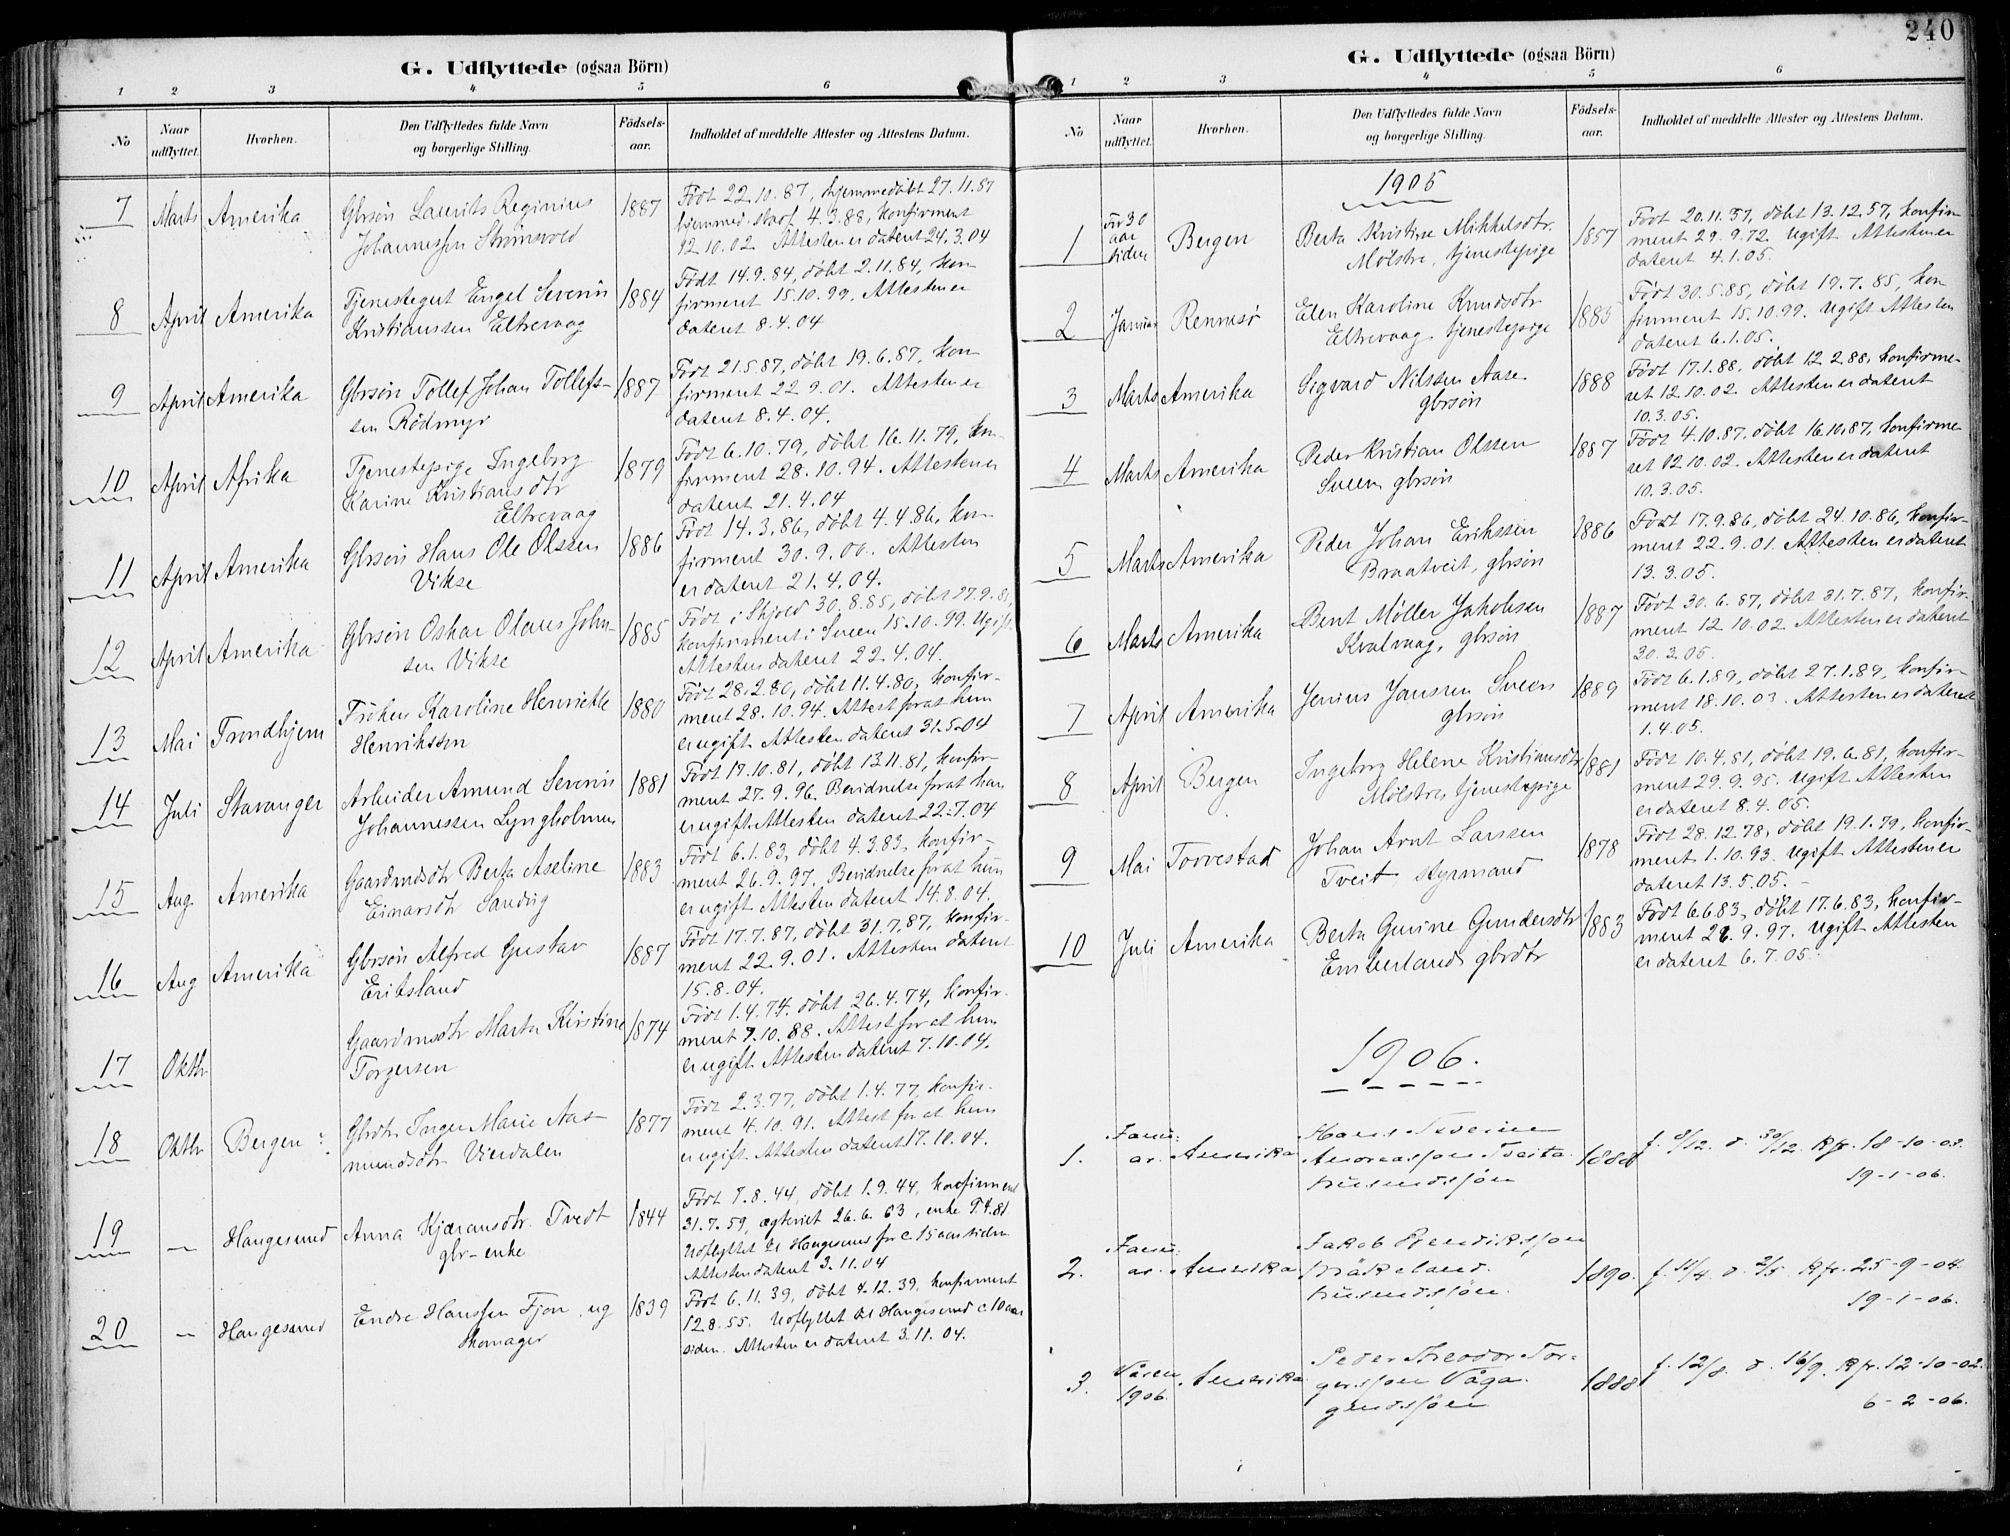 240
G. Udflyttede (ogsaa Börn)
1 2 3 4 5 6
No
Naar udflyttet.
Hvorhen.
Den Udflyttedes fulde Navn og borgerlige Stilling.
Födsels-aar.
Indholdet af meddelte Attester og Attestens Datum.
7 Marts Amerika Gbrsön Laurits Reginius 1887 Födt 22.10.87, hjemmedöbt 27.11.87
Johannessen Strömsvold hjemmed. stadf. 4.3.88, konfirmeret
12.10.02. Attesten er dateret 24.3.04
8 April Amerika Tjenestegut Engel Severin 1884 Födt 14.9.84, döbt 2.11.84, kon
Kristianssen Eltrevaag firmeret 15.10.99. Attesten er
dateret 8.4.04
9 April Amerika Gbrsön Tollef Johan Tollefs- 1887 Födt 21.5.87, döbt 19.6.87, kon
sen Rödmyr firmeret 22.9.01. Attesten er
dateret 8.4.04.
10 April Afrika Tjenestepige Ingeborg 1879 Födt 6.10.79, döbt 16.11.79, kon-
Karine Kristiansdtr firmeret 28.10.94. Attesten er
Eltrevaag dateret 21.4.04
11 April Amerika Gbrsön Hans Ole Olssen 1886 Födt 14.3.86, döbt 4.4.86, kon
Vikse firmeret 30.9.00. Attesten
er dateret 21.4.04.
12 April Amerika Gbrsön Oskar Olaus John- 1885 Födt i Skjold 30.8.85, döbt 27.9.85,
sen Vikse konfirmeret i Sveen 15.10.99. Ugift
Attesten dateret 22.4.04.
13 Mai Trondhjem Fröken Karoline Henriette 1880 Födt 28.2.80, döbt 11.4.80, konfir-
Henrikssen meret 28.10.94. Attest for at hun
er ugift. Attesten dateret 31.5.04
14 Juli Stavanger Arbeider Amund Severin 1881 Födt 17.10.81, döbt 13.11.81, konfir-
Johannessen Lyngholmen meret 27.9.96. Bevidnelse for at han
er ugift. Attesten dateret 22.7.04
15 Aug. Amerika Gaardmdsdtr Berta Aseline 1883 Födt 6.1.83, döbt 4.3.83, konfir-
Einarsdtr Sandvig meret 26.9.97. Bevidnelse for at hun
er ugift. Attesten dateret 14.8.04.
16 Aug Amerika Gbrsön Alfred Gustav 1887 Födt 17.7.87, döbt 31.7.87, konfir-
Eritsland meret 22.9.01. Attesten dateret
15.8.04.
17 Oktbr Gaardmsdtr Marta Kirstine 1874 Födt 1.4.74. döbt 26.4.74, konfir-
Torgersen meret 7.10.88. Attest for at hun
er ugift. Attesten dateret 7.10.04.
18 Oktbr Bergen? Gbrdtr. Inger Marie Aas- 1877 Födt 2.3.77, döbt 1.4.77, konfir-
mundsdtr Vierdalen meret 4.10.91. Attest for at hun
er ugift. Attesten dateret 17.10.04.
19 — Haugesund Anna Kjæransdtr. Tvedt 1844 Födt 7.8.44, döbt 1.9.44, konfirmeret
gbr-enke 31.7.59, ægteviet 26.6.63, enke 9.4.81
Udflyttet til Haugesund for c. 15 aar siden
Attesten dateret 3.11.04
20 — Haugesund Endre Hanssen Fjon, ug 1839 Födt 6.11.39, döbt 4.12.39, konfirmeret
skomager 12.8.55. Udflyttet til Haugesund c. 10 aar
siden. Attesten er dateret 3.11.04.
G. Udflyttede (ogsaa Börn)
1 2 3 4 5 6
No
Naar udflyttet.
Hvorhen.
Den Udflyttedes fulde Navn og borgerlige Stilling.
Födsels-aar.
Indholdet af meddelte Attester og Attestens Datum.
1905
1 For 30 aar siden Bergen Berta Kristine Mikkelsdtr. 1857 Födt 20.11.57, döbt 13.12.57, konfir
Mölstre, tjenestepige meret 29.9.72. Ugift Attesten er
dateret 4.1.05.
2 Januar Rennesö Elen Karoline Knudsdtr 1885 Födt 30.5.85, döbt 19.7.85, kon
Eltrevaag, tjenestepige firmeret 15.10.99. Ugift Attesten
dateret 6.1.05.
3 Marts Amerika Sigvard Nilssen Aase 1888 Födt 17.1.88, döbt 12.2.88, konfirme-
gbrsön ret 12.10.02. Attesten er dateret
10.3.05.
4 Marts Amerika Peder Kristian Olssen 1887 Födt 4.10.87, döbt 16.10.87, konfirme
Sveen gbrsön ret 12.10.02. Attesten er dateret
10.3.05.
5 Marts Amerika Peder Johan Erikssen 1886 Födt 17.9.86, döbt 24.10.86, konfir-
Braatveit, gbrsön meret 22.9.01. Attesten er dateret
13.3.05.
6 Marts Amerika Bent Möller Jakobsen 1887 Födt 30.6.87, döbt 31.7.87, konfir-
Kvalvaag, gbrsön meret 12.10.02. Attesten er dateret
30.3.05.
7 April Amerika Jenius Janssen Sveen 1889 Födt 6.1.89, döbt 27.1.89, konfir-
gbrsön meret 18.10.03. Attesten er dateret
1.4.05.
8 April Bergen Ingeborg Helene Kristiansdtr 1881 Födt 10.4.81, döbt 19.6.81, konfir-
Mölstre, tjenestepige meret 29.9.95. Ugift Attesten
er dateret 8.4.05.
9 Mai Torvestad Johan Arnt Larssen 1878 Födt 28.12.78, döbt 19.1.79, konfir-
Tveit, styrmand meret 1.10.93. Ugift Attesten er
dateret 13.5.05.-
10 Juli Amerika Berta Gurine Gundersdtr 1883 Födt 6.6.83, döbt 17.6.83, konfir-
Emberland gbrdtr meret 26.9.97. Ugift Attesten
er dateret 6.7.05.
1906.
1. Januar. Amerika Hans Severin 1888 f. 8/12. d. 30/12. Kfr. 18-10-03.
Andreassøn Tveita. 19-1-06.
husmdssøn
2. Januar. Amerika Jakob Bendikssøn 1890. f. 11/4. d. 2/5. Kfr. 25-9-04.
husmdssøn. 19-1-06.
3. Våren 1906. Amerika Peder Theodor Tor- 1888 f. 12/8. d. 16/9. Kfr. 12-10-02.
gerssøn Våga. 6-2-06.
gmdssøn